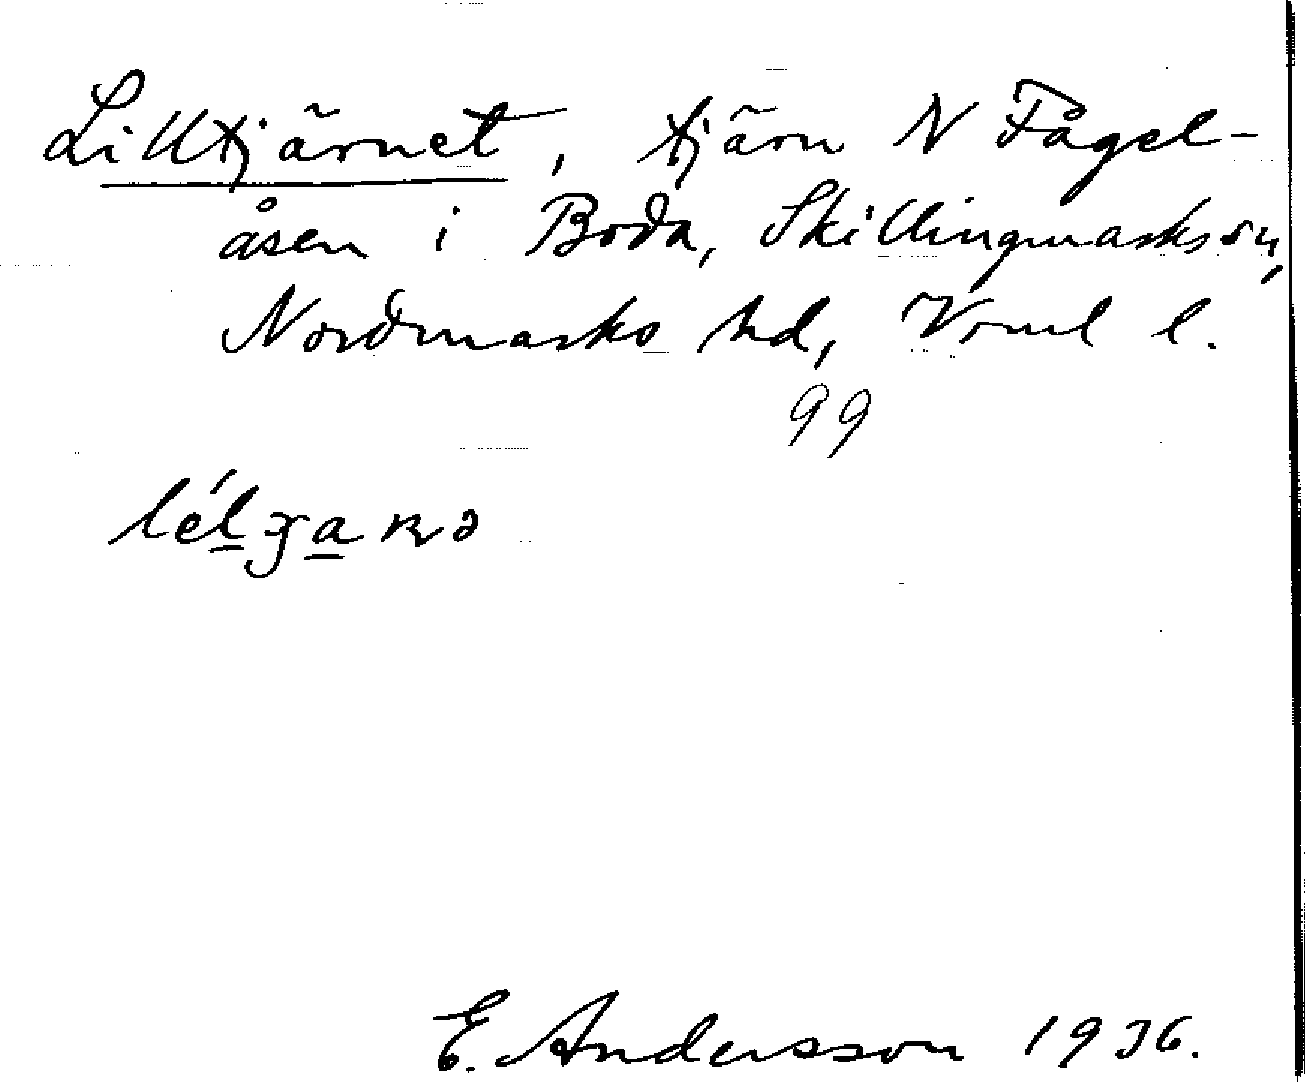 Lilltjärnet, tjärn N Fågel-
åsen i Boda, Skillingmarks sn,
Nordmarks hd, Vrml l.
99
E. Andersson 1936.